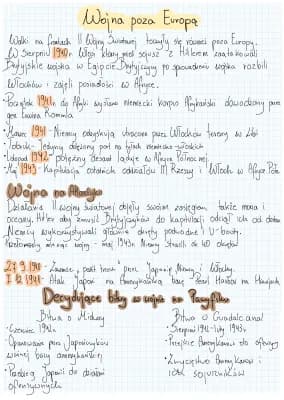 Wojna poza Europą
Walki na frontach II Wojny Światowej toczyły się również poza Europą.
W Sierpniu 1940r. Włosi, którzy mieli sojusz z Hitlerem zaatakowali
Brytyjskie wojska w Egipcie. Brytyjczycy po sprowadzeniu wojska rozbili
Włochów i zajęli posiadłości w Afryce.
Początek 1941r. do Afryki wysłano niemiecki korpus Afrykański dowodzony przez
gen. Erwina Rommla
Marzec 1941 - Niemcy odzyskują utracone przez Włochów tereny w Libii
Tobruk - Jedyny
Listopad 1942 - potężny desant ląduje w Afryce Północnej.
Maj 1943 - Kapitulacja ostatnich oddziałów III Rzeszy i Włoch w Afryce Płn.
Wojna na Atlantyku
Działania II wojny światowej objęły swoim zasięgiem, także morza i
oceany. Hitler aby zmusić Brytyjczyków do kapitulacji odciął ich od dostaw
Niemcy wykorzystywali głównie okręty podwodne i U-booty.
maj 1943r. Niemcy stracili ok 40 okrętów
27.9.1940 - Zawarcie paktu trzech przez Japonię, Niemcy i Włochy.
7.12.1941 - Atak Japonii na Amerykańską bazę Pearl Harbor na Hawajach.
Decydujące bitwy w wojnie na Pacyfiku
Bitwa o Midway
Bitwa o Guadalcanal
Czerwiec 1942r.
Sierpień 1942 - luty 1943r.
Opanowana przez Japończyków
wojnej bazy amerykańskiej
Przejście Amerykanów do ofensywy
Przejście Japonii do działań
ofensywnych
Zwycięstwo Amerykanów i
ich sojuszników